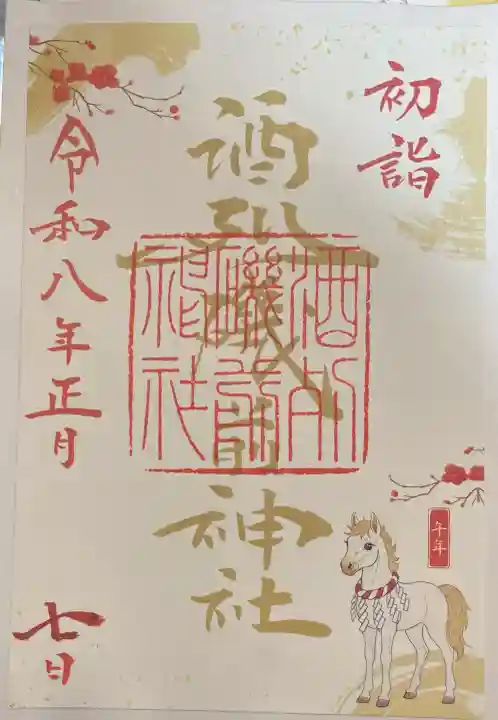 初詣
酒列磯前神社
酒列
磯前
神社
令和八年正月
七日
午年